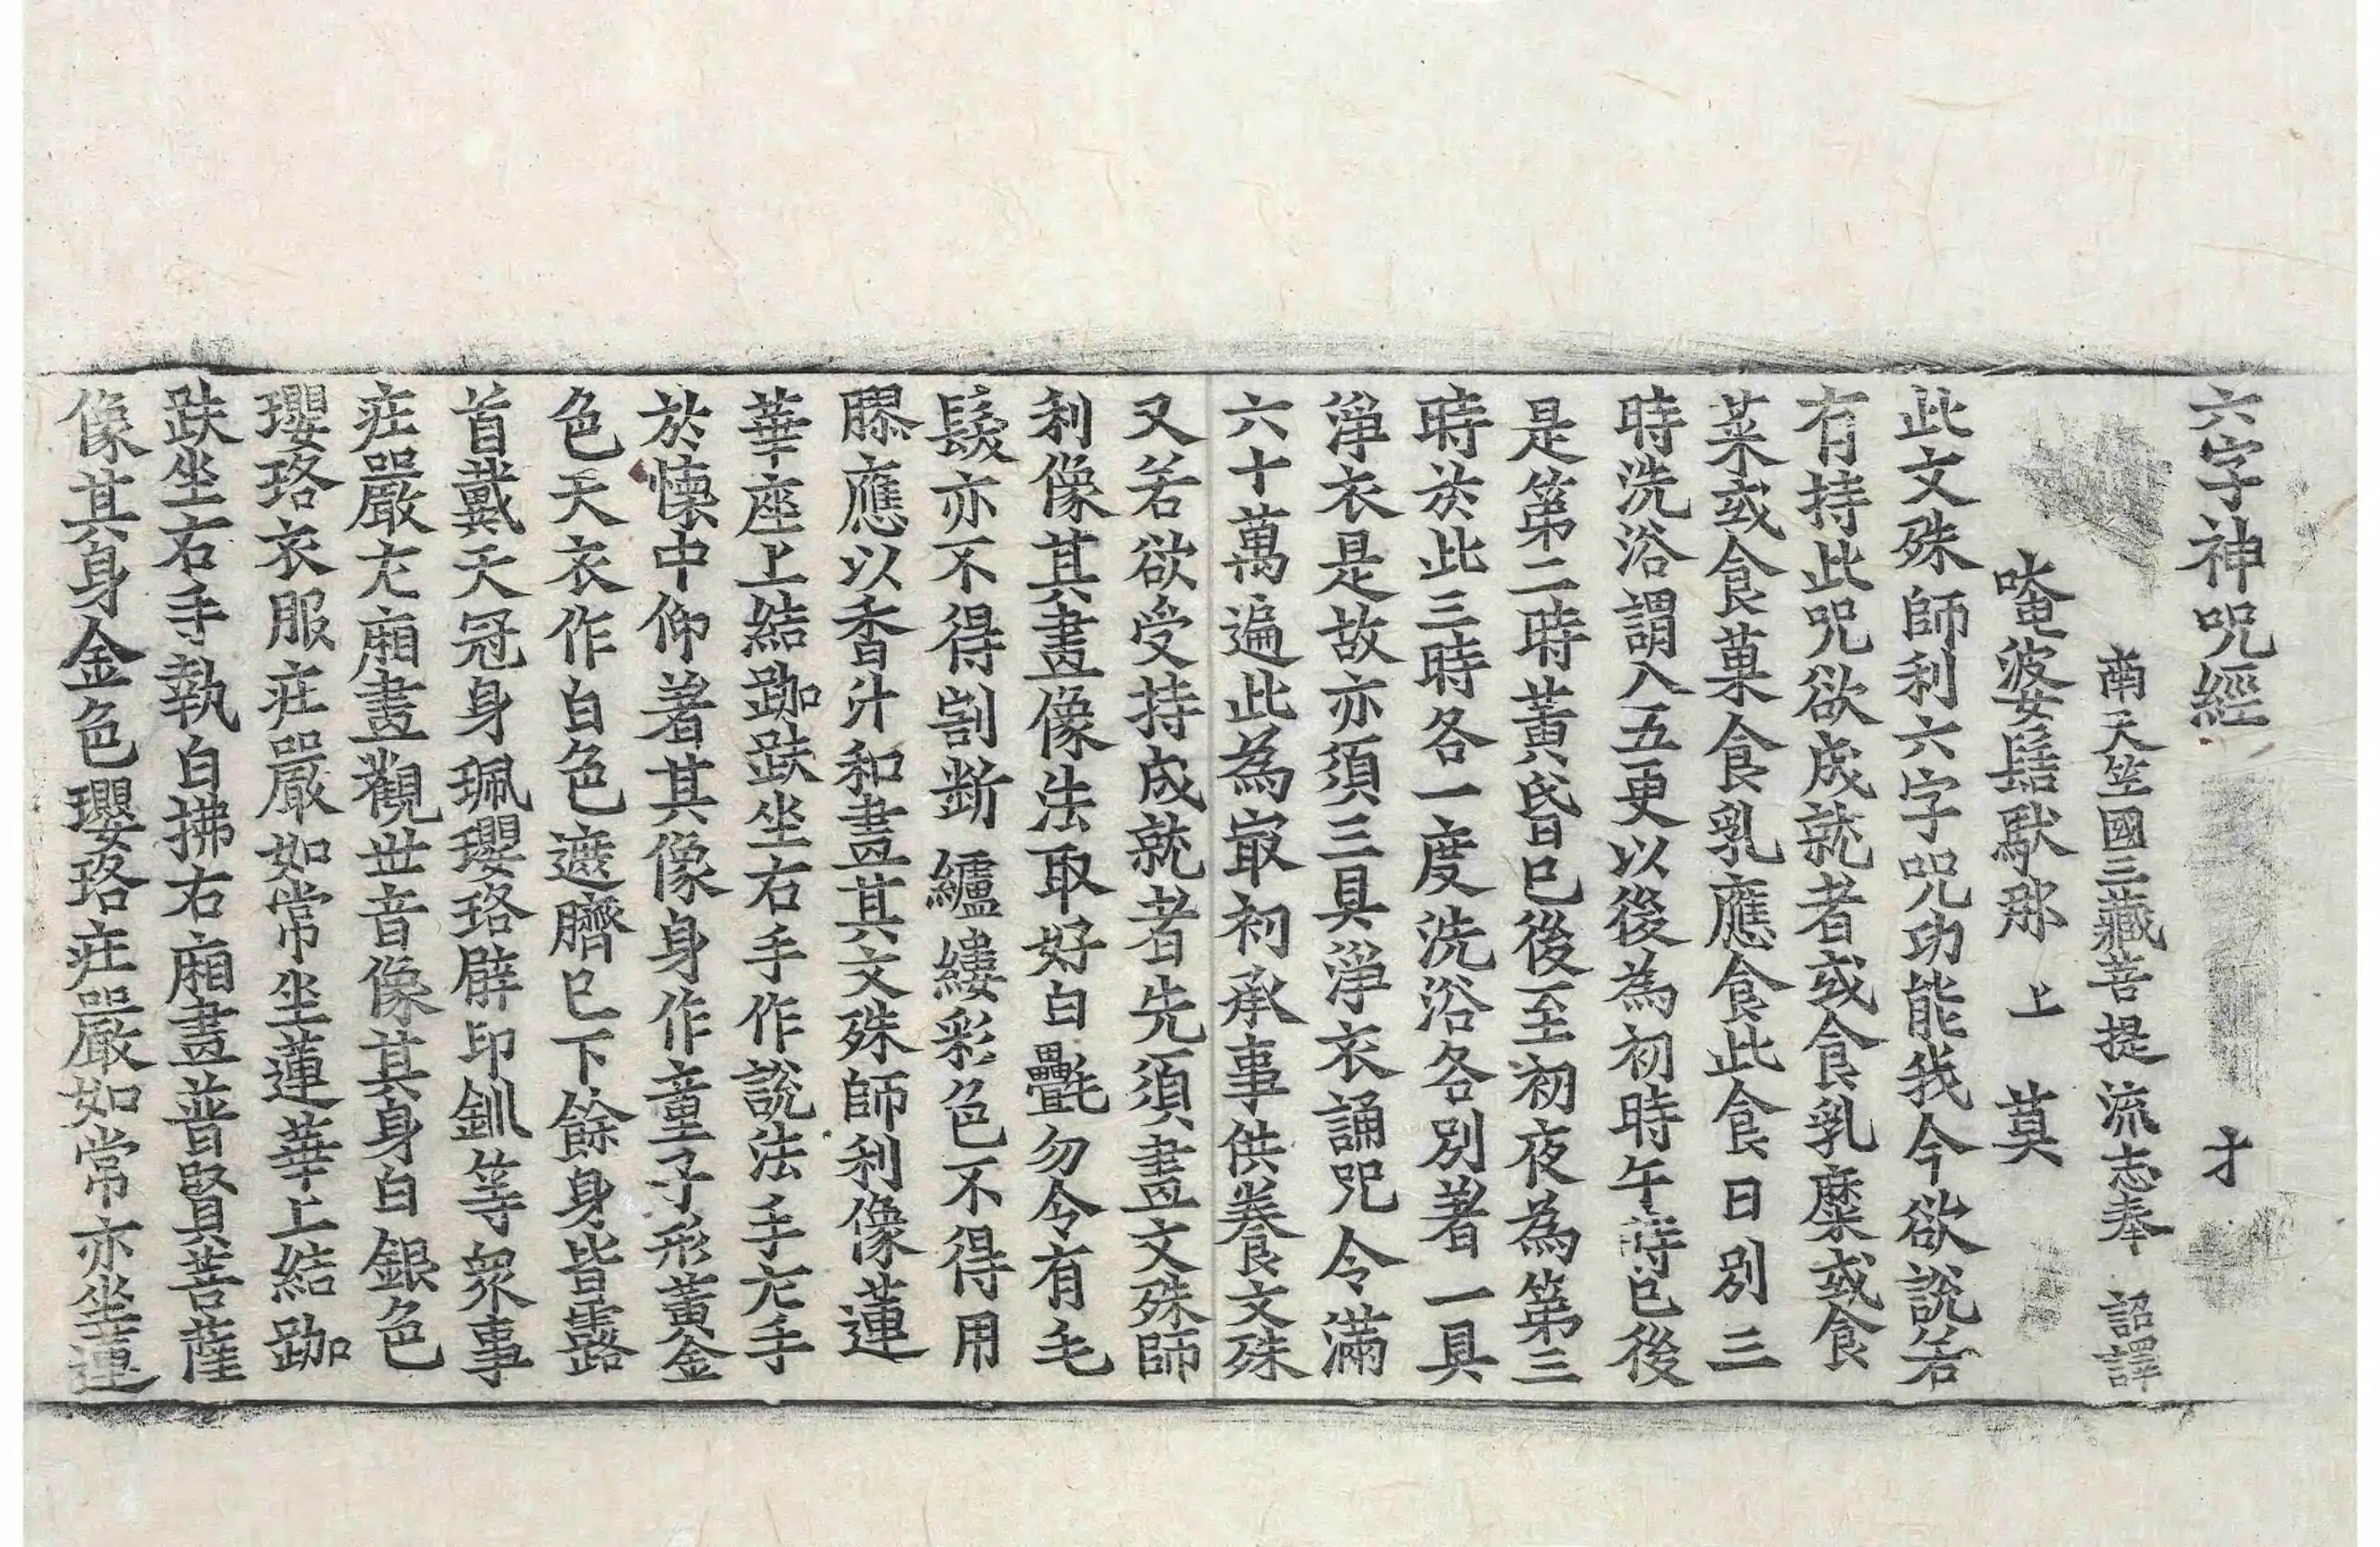 六字神呪經 才
南天竺國三藏菩提流志奉 詔譯
唵婆髻馱那 上 莫
此文殊師利六字呪功能我今欲說若
有持此呪欲成就者或食乳糜或食
菜或食菓食乳應食此食日別三
時洗浴謂入五更以後為初時午時已後
是第二時黃昏已後至初夜為第三
時於此三時各一度洗浴各別著一具
淨衣是故亦須三具淨衣誦呪令滿
六十萬遍此為㝡初承事供養文殊
又若欲受持成就者先須畫文殊師
利像其畫像法取好白㲲勿令有毛
髮亦不得割斷纑縷彩色不得用
膠應以香汁和畫其文殊師利像蓮
華座上結跏趺坐右手作說法手左手
於懷中仰著其像身作童子形黃金
色天衣作白色遮臍已下餘身皆露
首戴天冠身珮瓔珞臂印釧等衆事
莊嚴左廂畫觀世音像其身白銀色
瓔珞衣服莊嚴如常坐蓮華上結跏
趺坐右手執白拂右廂畫普賢菩薩
像其身金色瓔珞莊嚴如常亦坐蓮